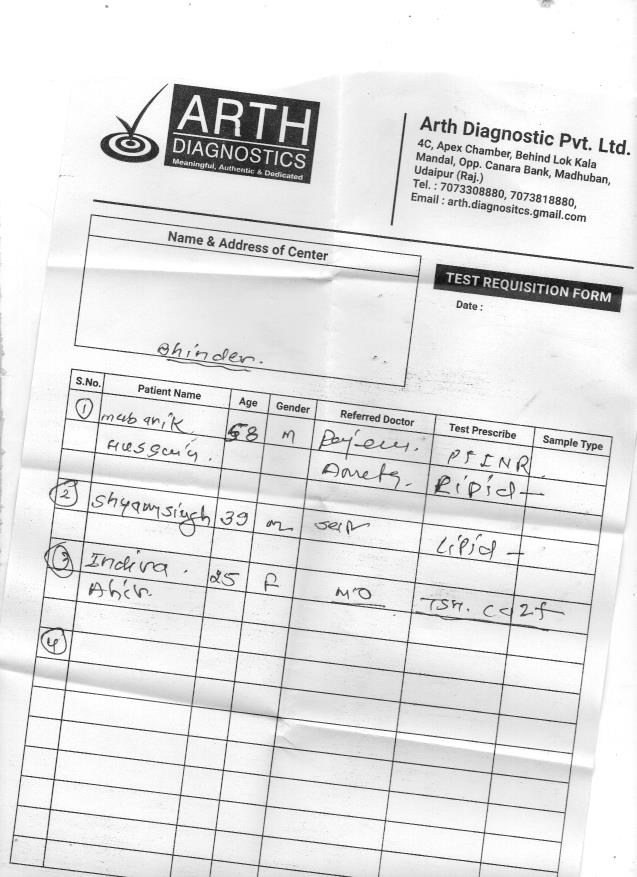 ARTH
DIAGNOSTICS
Meaningful, Authentic & Dedicated
Arth Diagnostic Pvt. Ltd.
4C, Apex Chamber, Behind Lok Kala
Mandal, Opp. Canara Bank, Madhuban,
Udaipur (Raj.)
Tel. : 7073308880, 7073818880,
Email : arth.diagnositcs.gmail.com
Name & Address of Center
Bhinder.
TEST REQUISITION FORM
Date :
S.No. Patient Name Age Gender Referred Doctor Test Prescribe Sample Type
1 mubarik 58 m PTINR
Hussain. Lipid
2 Shyamsingh 39 m self Lipid
3 Indira. 25 F MO TSH.
Ahir.
4